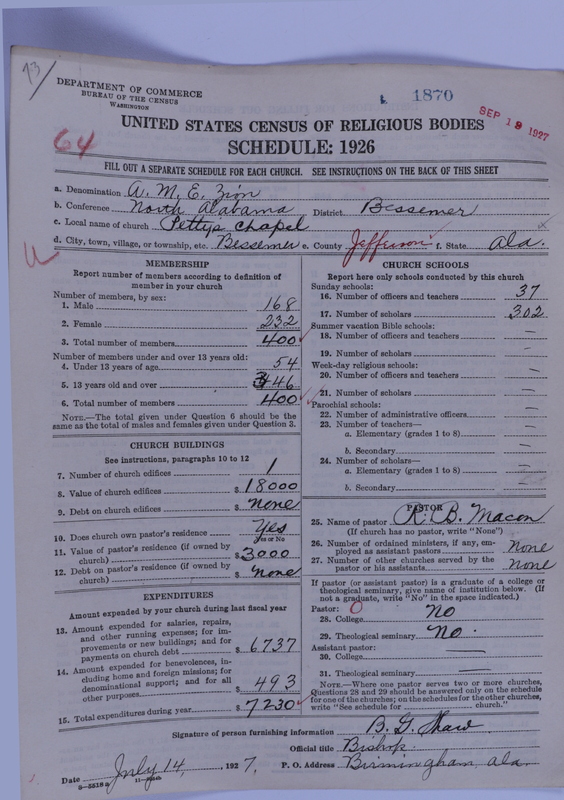 73
DEPARTMENT OF COMMERCE
BUREAU OF THE CENSUS
WASHINGTON
1870
SEP 19 1927
64
UNITED STATES CENSUS OF RELIGIOUS BODIES
SCHEDULE: 1926
FILL OUT A SEPARATE SCHEDULE FOR EACH CHURCH. SEE INSTRUCTIONS ON THE BACK OF THIS SHEET
a. Denomination A. M. E. Zion
b. Conference North Alabama District Bessemer
c. Local name of church Pettys Chapel
d. City, town, village, or township, etc. Bessemer e. County Jefferson f. State Ala.
MEMBERSHIP
Report number of members according to definition of
member in your church
Number of members, by sex:
1. Male 168
2. Female 232
3. Total number of members 400
Number of members under and over 13 years old:
4. Under 13 years of age 54
5. 13 years old and over 346
6. Total number of members 400
NOTE.—The total given under Question 6 should be
same as the total of males and females given under Question 3.
CHURCH BUILDINGS
See instructions, paragraphs 10 to 12
7. Number of church edifices 1
8. Value of church edifices $ 18000
9. Debt on church edifices $ none
10. Does church own pastor's residence? Yes
Yes or No
11. Value of pastor's residence (if owned by
church) $ 3000
12. Debt on pastor's residence (if owned by
church) $ none
EXPENDITURES
Amount expended by your church during last fiscal year
13. Amount expended for salaries, repairs,
and other running expenses; for im-
provements or new buildings; and for
payments on church debt $ 6737
14. Amount expended for benevolences, in-
cluding home and foreign missions; for
denominational support; and for all
other purposes $ 493
15. Total expenditures during year $ 7230
CHURCH SCHOOLS
Report here only schools conducted by this church
Sunday schools:
16. Number of officers and teachers 37
17. Number of scholars 302
Summer vacation Bible schools:
18. Number of officers and teachers —
19. Number of scholars —
Week-day religious schools:
20. Number of officers and teachers —
21. Number of scholars —
Parochial schools:
22. Number of administrative officers —
23. Number of teachers—
a. Elementary (grades 1 to 8) —
b. Secondary —
24. Number of scholars—
a. Elementary (grades 1 to 8) —
b. Secondary —
PASTOR
25. Name of pastor R. B. Macon
(If church has no pastor, write "None")
26. Number of ordained ministers, if any, em-
ployed as assistant pastors None
27. Number of other churches served by the
pastor or his assistants None
If pastor (or assistant pastor) is a graduate of a college or
theological seminary, give name of institution below. (If
not a graduate, write "No" in the space indicated.)
Pastor: 0
28. College No
29. Theological seminary No.
Assistant pastor:
30. College —
31. Theological seminary —
NOTE.—Where one pastor serves two or more churches,
Questions 28 and 29 should be answered only on the schedule
for one of the churches; on the schedules for the other churches,
write "See schedule for church."
Signature of person furnishing information B. G. Shaw
Official title Bishop
Date July 14, 1927. P. O. Address Birmingham Ala.